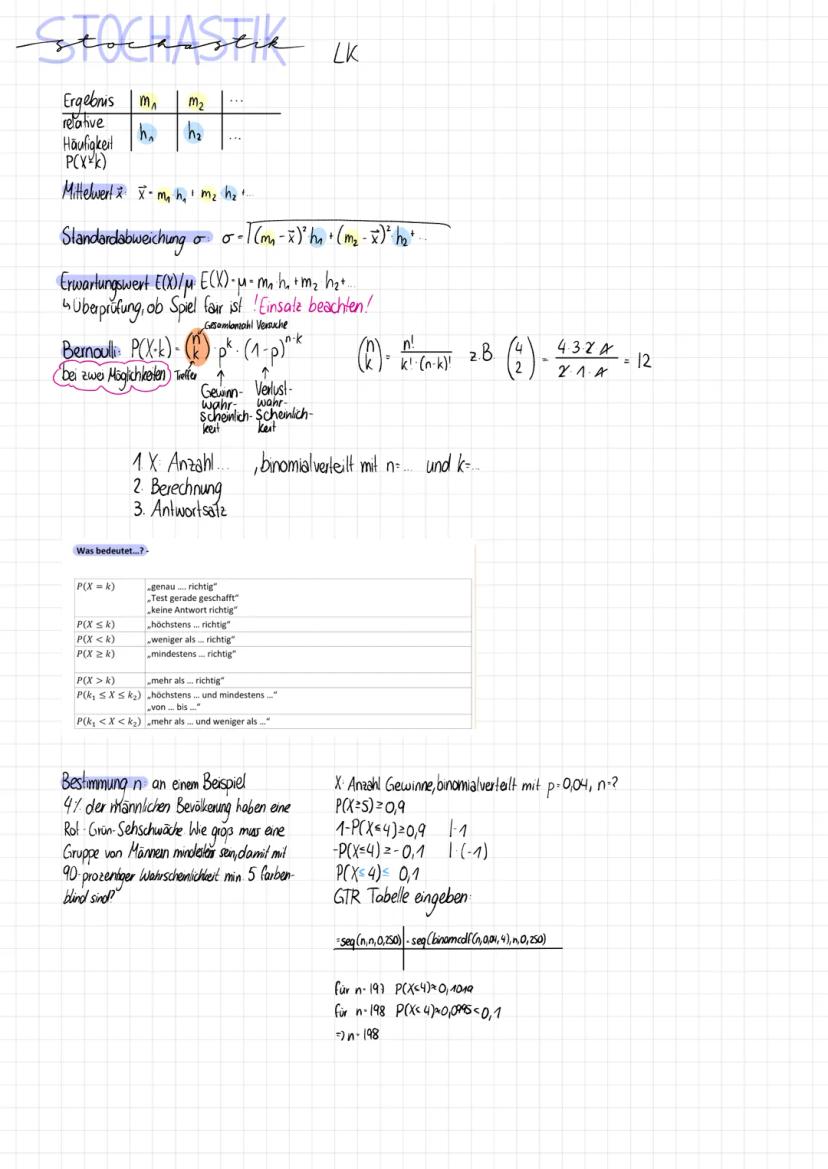 STOCHASTIK
stochastik LK
Ergebnis | m₁ | m₂ | ...
relative Häufigkeit P(X=k) | h₁ | h₂ | ...
Mittelwert x̄: x̄ = m₁·h₁ + m₂·h₂ + ...
Standardabweichung σ: σ = √((m₁-x̄)²·h₁ + (m₂-x̄)²·h₂ + ...
Erwartungswert E(X)/μ: E(X)=μ= m₁·h₁ + m₂·h₂+...
↳ Überprüfung, ob Spiel fair ist !Einsatz beachten!
Gesamtanzahl Versuche
Bernoulli: P(X=k) = (n k) · p^k · (1-p)^(n-k) (n k) = n! / (k!·(n-k)!) z.B. (4 2) = 4·3·2·1 / (2·1·1) = 12
bei zwei Möglichkeiten Treffer
Gewinn-wahr-scheinlich-keit
Verlust-wahr-scheinlich-keit
1. X: Anzahl... , binomialverteilt mit n=... und k=...
2. Berechnung
3. Antwortsatz
Was bedeutet...? -
P(X = k) „genau .... richtig"
„Test gerade geschafft"
„keine Antwort richtig"
P(X ≤ k) „höchstens ... richtig"
P(X < k) „weniger als ... richtig"
P(X ≥ k) „mindestens ... richtig"
P(X > k) „mehr als ... richtig"
P(k₁ ≤ X ≤ k₂) „höchstens ... und mindestens ..."
„von ... bis ..."
P(k₁ < X < k₂) „mehr als ... und weniger als ..."
Bestimmung n: an einem Beispiel
4% der männlichen Bevölkerung haben eine
Rot-Grün-Sehschwäche. Wie groß muss eine
Gruppe von Männern mindestens sein, damit mit
90-prozentiger Wahrscheinlichkeit min. 5 farben-
blind sind?
X: Anzahl Gewinne, binomialverteilt mit p=0,04, n=?
P(X≥5)≥0,9
1-P(X≤4)≥0,9 |-1
-P(X≤4)≥-0,1 |·(-1)
P(X≤4)≤ 0,1
GTR Tabelle eingeben:
=seq(n,n,0,250) | =seq(binomcdf(n,0.04,4),n,0,250)
für n=197 P(X≤4)≈0,1019
für n=198 P(X≤4)≈0,0995<0,1
=> n=198